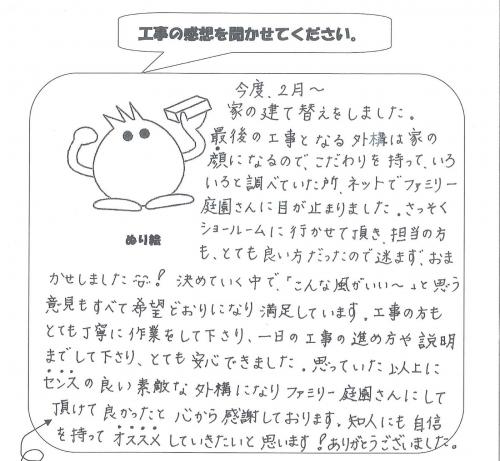 工事の感想を聞かせてください。
今度、2月〜
家の建て替えをしました。
最後の工事となる外構は家の
顔になるので、こだわりを持って、いろ
いろと調べていた所、ネットでファミリー
庭園さんに目が止まりました。さっそく
ショールームに行かせて頂き、担当の方
も、とても良い方だったので迷まず、おま
かせしました!
決めていく中で、「こんな風がいい〜」と思う
意見もすべて希望どおりになり満足しています。工事の方も
とても丁寧に作業をして下さり、一日の工事の進め方や説明
までして下さり、とても安心できました。思っていた以上に
センスの良い素敵な外構になりファミリー庭園さんにして
頂けて良かったと心から感謝しております。知人にも自信
を持ってオススメしていきたいと思います!ありがとうございました。
ぬり絵